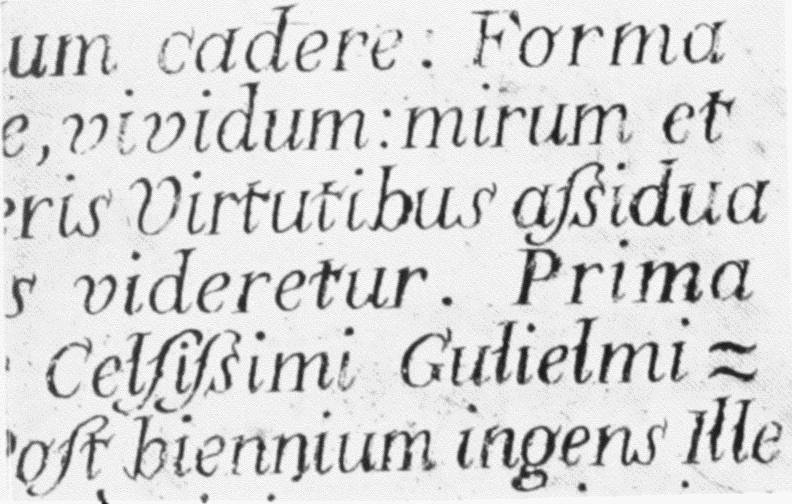 um cadere: Forma
e, vividum: mirum et
eris Virtutibus aſsidua
s videretur. Prima
Celſiſsimi Gulielmi ≈
Poſt biennium ingens Ille